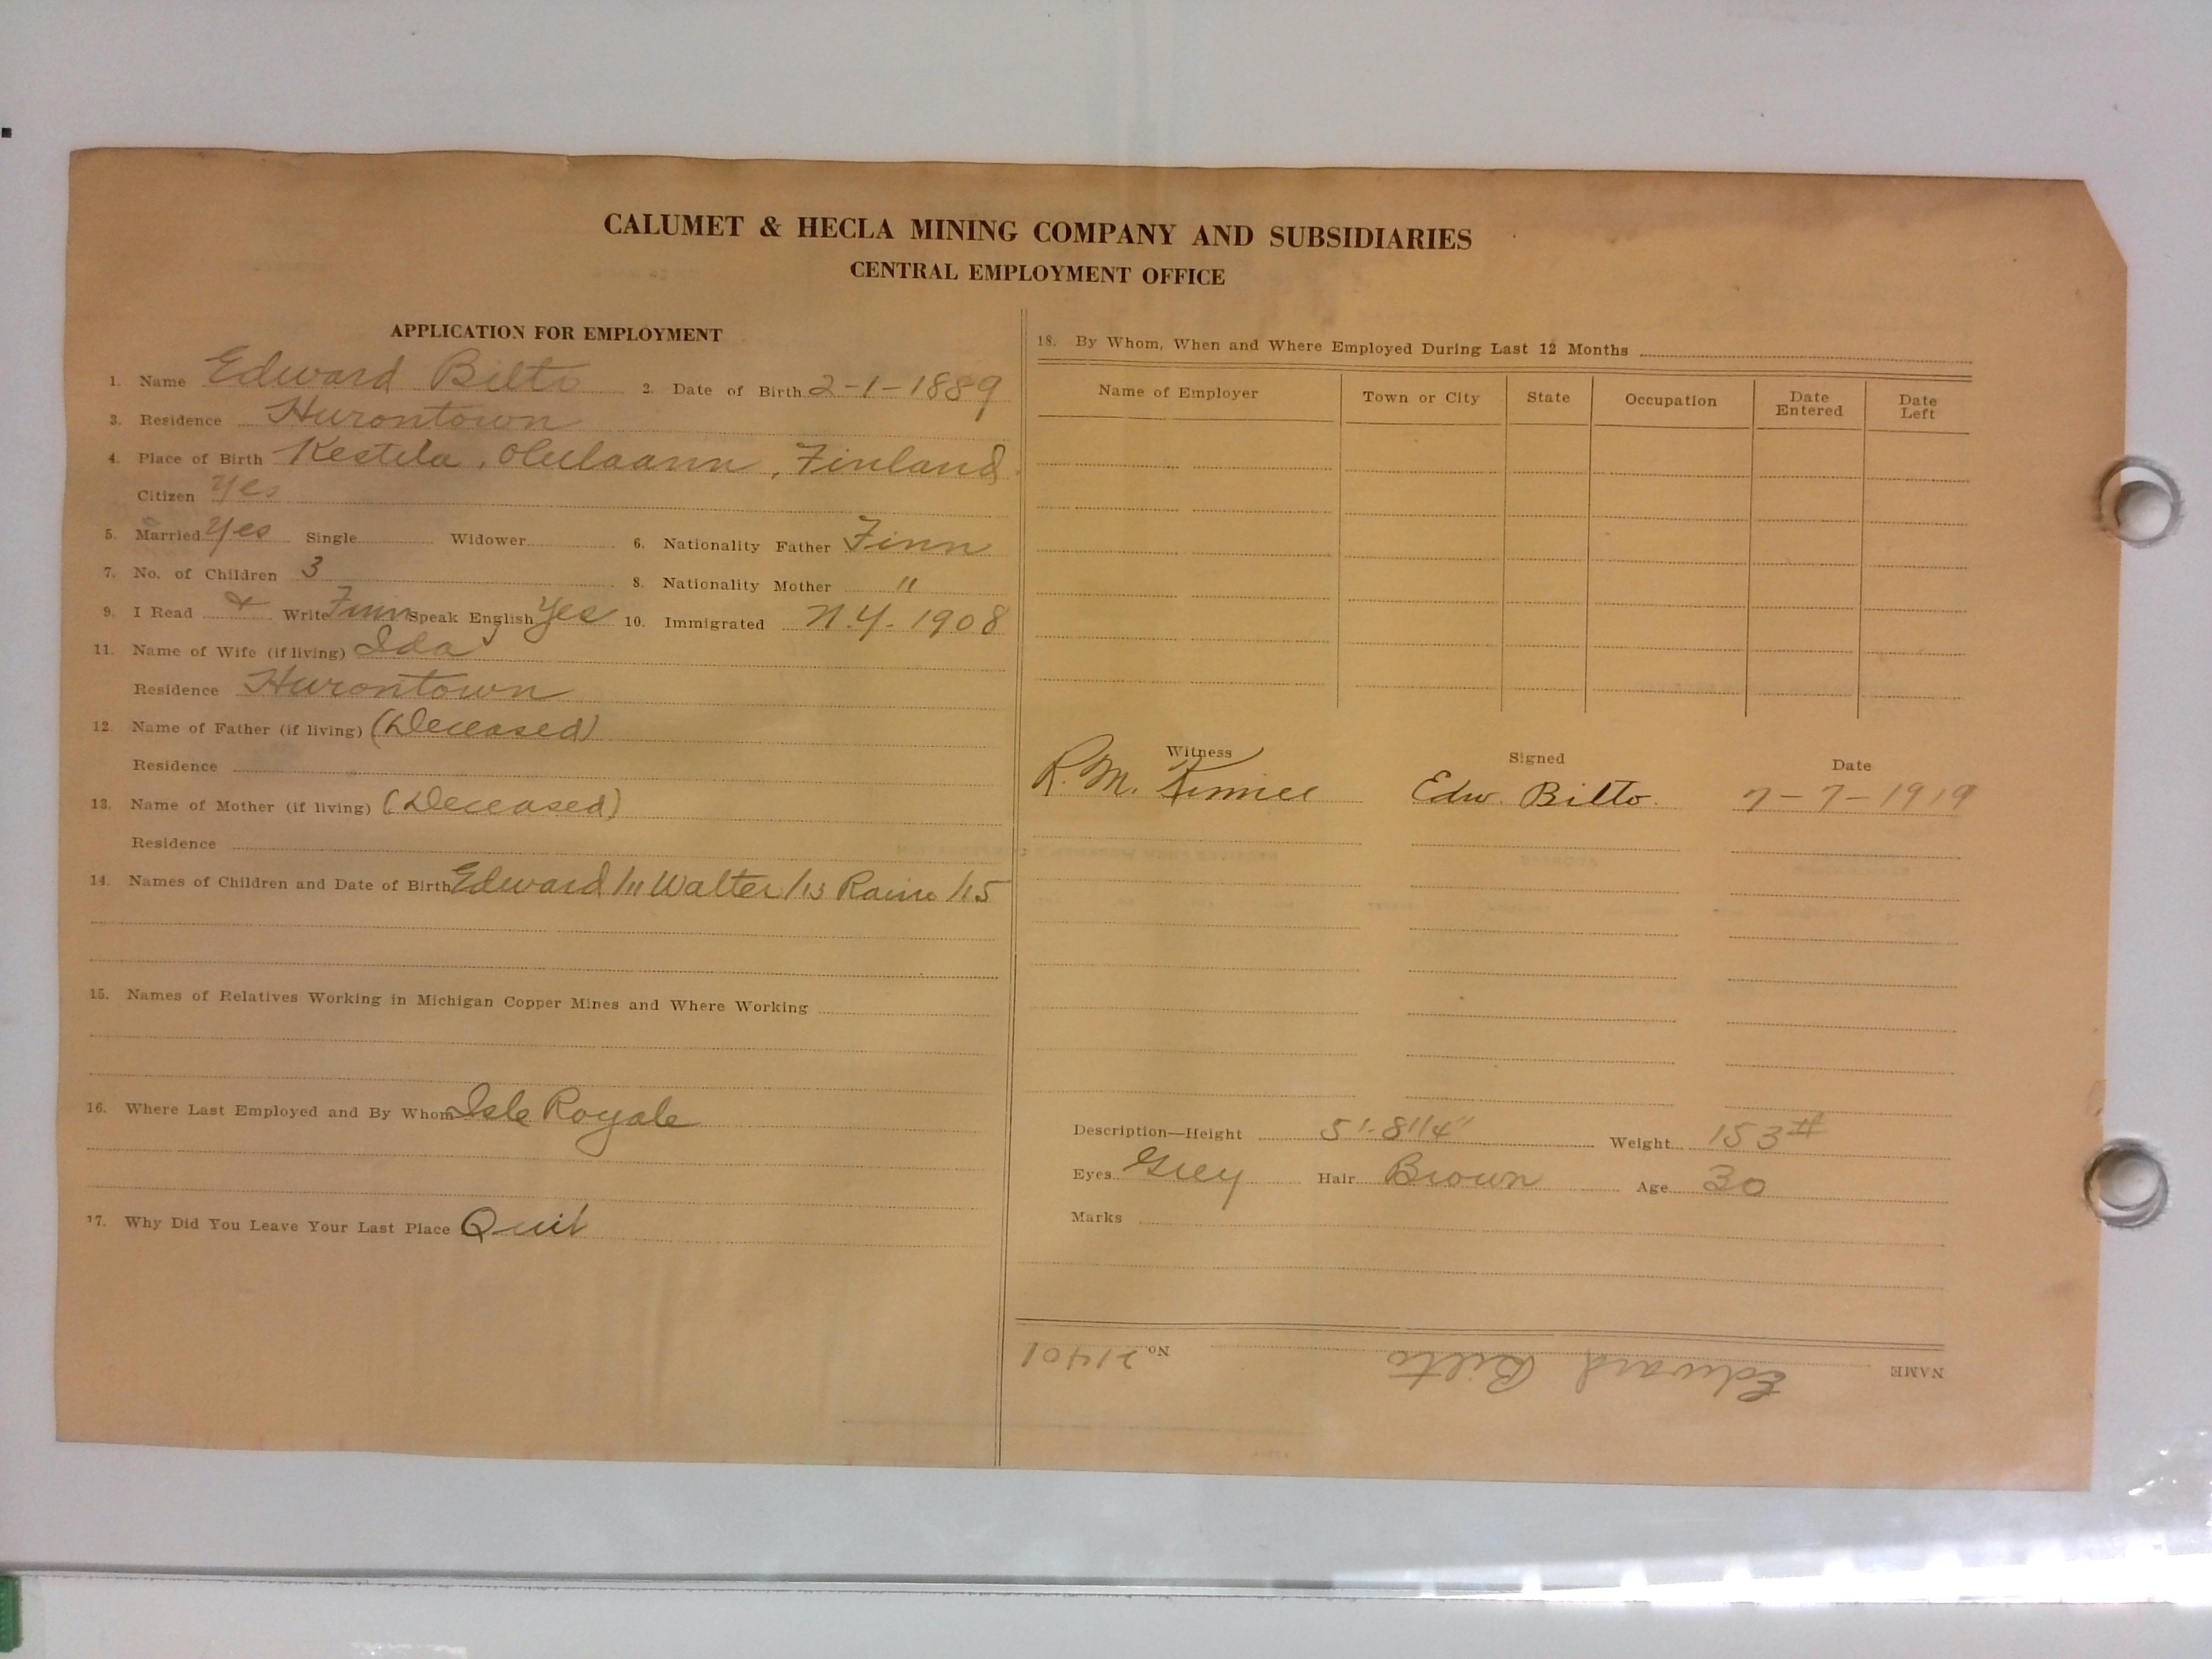 CALUMET & HECLA MINING COMPANY AND SUBSIDIARIES
CENTRAL EMPLOYMENT OFFICE
APPLICATION FOR EMPLOYMENT
1. Name Edward Bilto 2. Date of Birth 2-1-1889
3. Residence Hurontown
4. Place of Birth Kestila, Olulaann, Finland
Citizen Yes
5. Married Yes Single Widower 6. Nationality Father Finn
7. No. of Children 3 8. Nationality Mother "
9. I Read & Write Finn Speak English Yes 10. Immigrated N.Y. 1908
11. Name of Wife (if living) Ida
Residence Hurontown
12. Name of Father (if living) (Deceased)
Residence
13. Name of Mother (if living) (Deceased)
Residence
14. Names of Children and Date of Birth Edward /11 Walter /13 Raino /15
15. Names of Relatives Working in Michigan Copper Mines and Where Working
16. Where Last Employed and By Whom Isle Royale
17. Why Did You Leave Your Last Place Quit
18. By Whom, When and Where Employed During Last 12 Months
Name of Employer Town or City State Occupation Date Entered Date Left
Witness Signed Date
R. M. Edw. Bilto. 7-7-1919
Description—Height 5'-8 1/4" Weight 153#
Eyes Grey Hair Brown Age 30
Marks
NAME Edward Bilto No. 21401